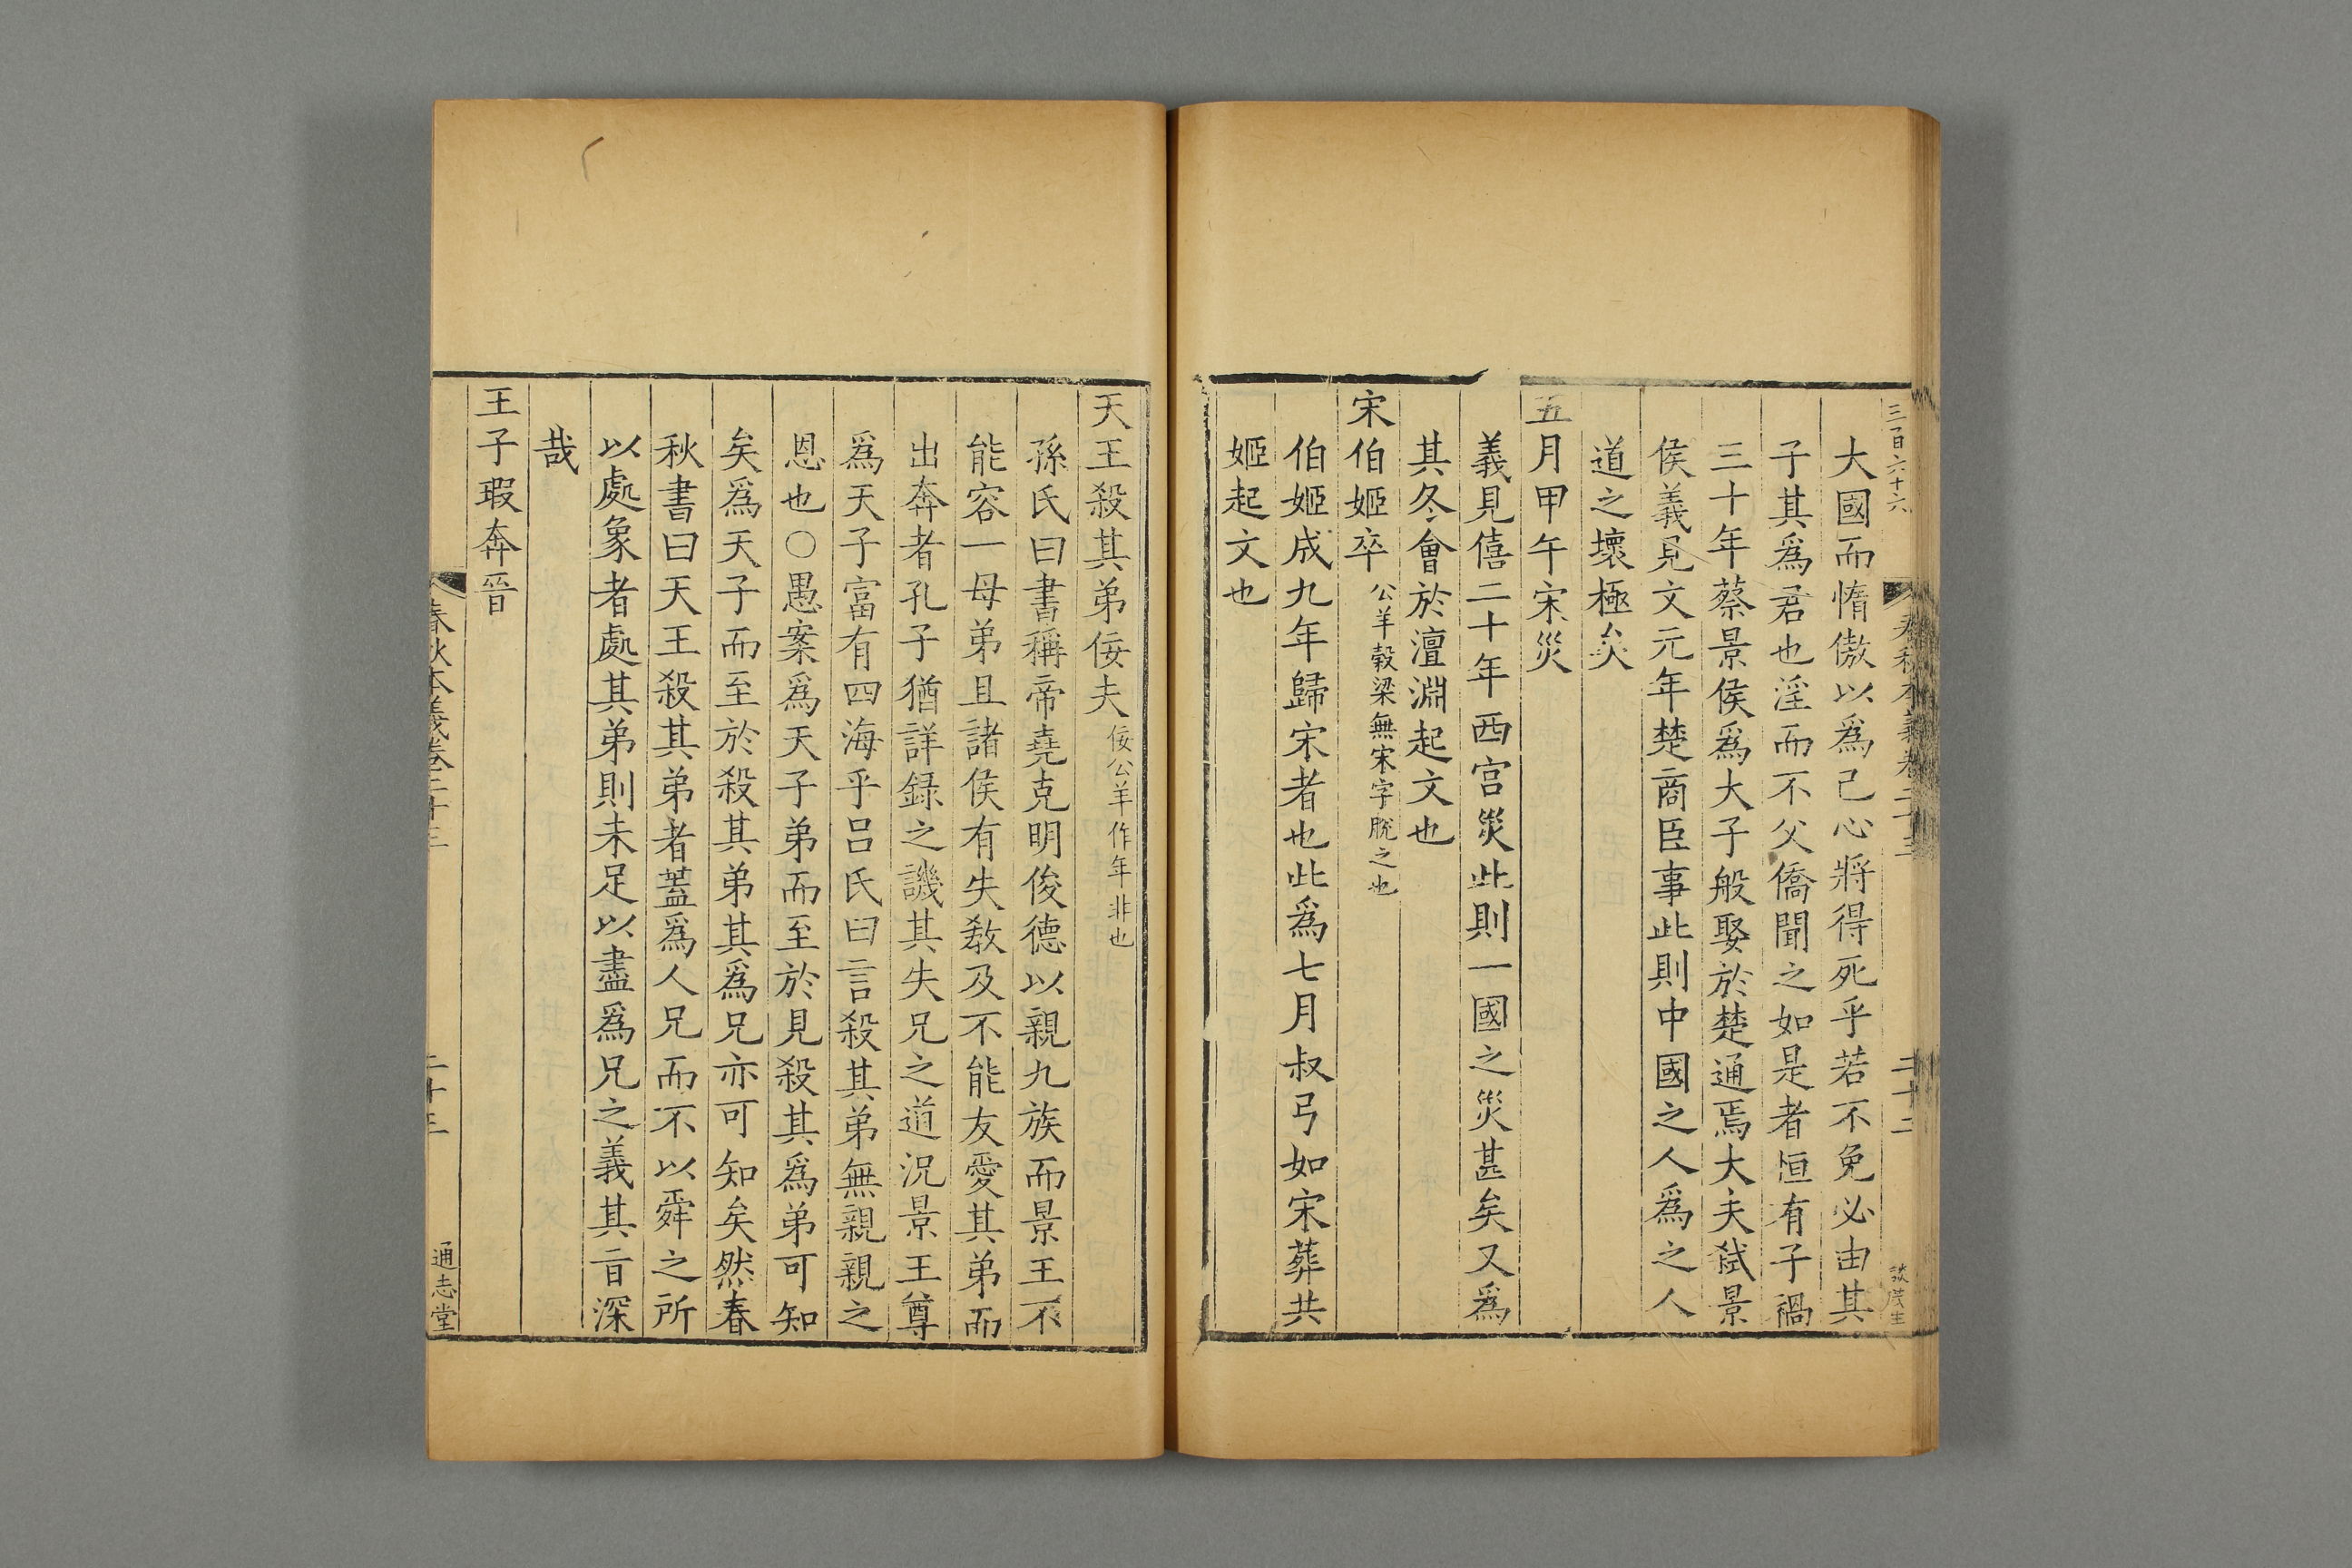 三百六十六
春秋本義卷二十三
二十二
大國而惰傲以爲己心將得死乎若不免必由其
子其爲君也淫而不父僑聞之如是者恒有子禍
三十年蔡景侯爲大子般娶於楚通焉大夫弑景
侯義見文元年楚商臣事此則中國之人爲之人
道之壞極矣
五月甲午宋災
義見僖二十年西宫災此則一國之災甚矣又爲
其冬會於澶淵起文也
宋伯姬卒公羊穀梁無宋字脫之也
伯姬成九年歸宋者也此爲七月叔弓如宋葬共
姬起文也
天王殺其弟佞夫佞公羊作年非也
孫氏曰書稱帝堯克明俊德以親九族而景王不
能容一母弟且諸侯有失敎及不能友愛其弟而
出奔者孔子猶詳録之譏其失兄之道況景王尊
爲天子富有四海乎吕氏曰言殺其弟無親親之
恩也○愚案爲天子弟而至於見殺其爲弟可知
矣爲天子而至於殺其弟其爲兄亦可知矣然春
秋書曰天王殺其弟者蓋爲人兄而不以舜之所
以處象者處其弟則未足以盡爲兄之義其旨深
哉
王子瑕奔晉
春秋本義卷二十三
二十三
通志堂